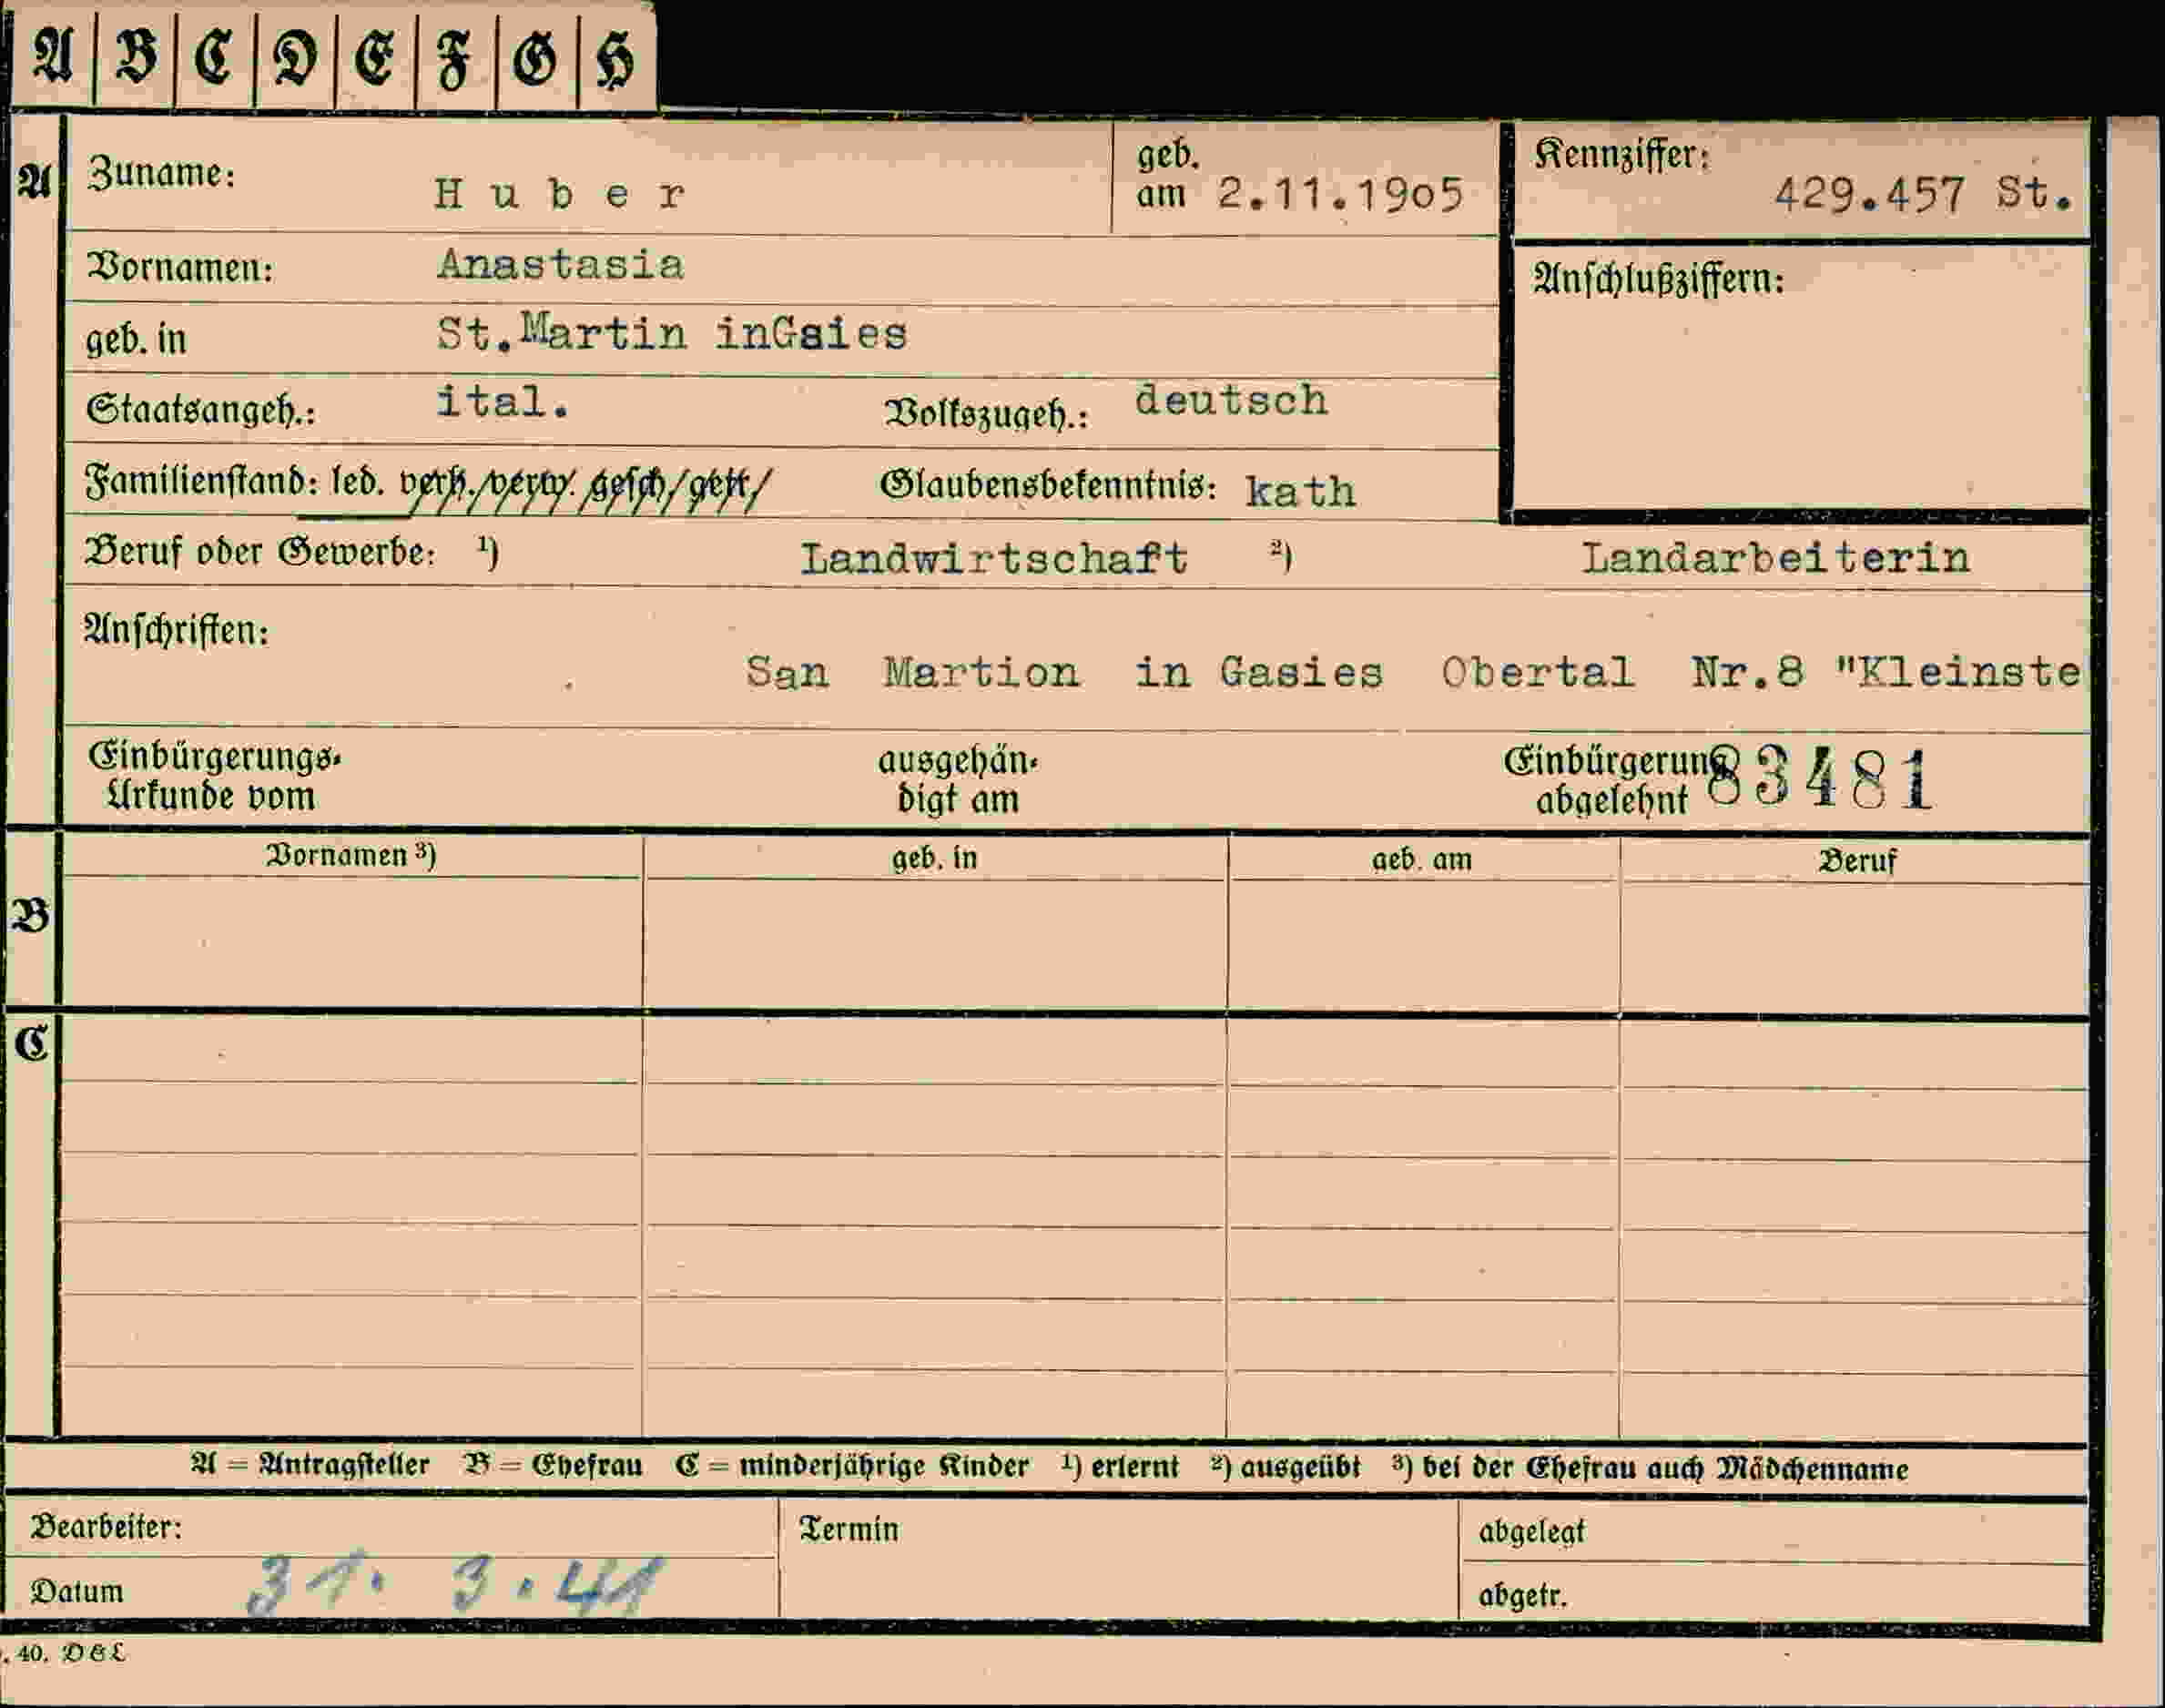 A B C D E F G H
A Zuname: Huber geb. am 2.11.1905 Kennziffer: 429.457 St.
Vornamen: Anastasia Anschlußziffern:
geb. in St.Martin inGsies
Staatsangeh.: ital. Volkszugeh.: deutsch
Familienstand: led. verh. verw. gesch. getr. Glaubensbekenntnis: kath
Beruf oder Gewerbe: ¹) Landwirtschaft ²) Landarbeiterin
Anschriften:
San Martion in Gasies Obertal Nr.8 "Kleinste
Einbürgerungs- ausgehän- Einbürgerung 83481
Urkunde vom digt am abgelehnt
Vornamen ³) geb. in geb. am Beruf
B
C
A = Antragsteller B = Ehefrau C = minderjährige Kinder ¹) erlernt ²) ausgeübt ³) bei der Ehefrau auch Mädchenname
Bearbeiter: Termin abgelegt
Datum 31. 3. 41 abgetr.
. 40. DGL